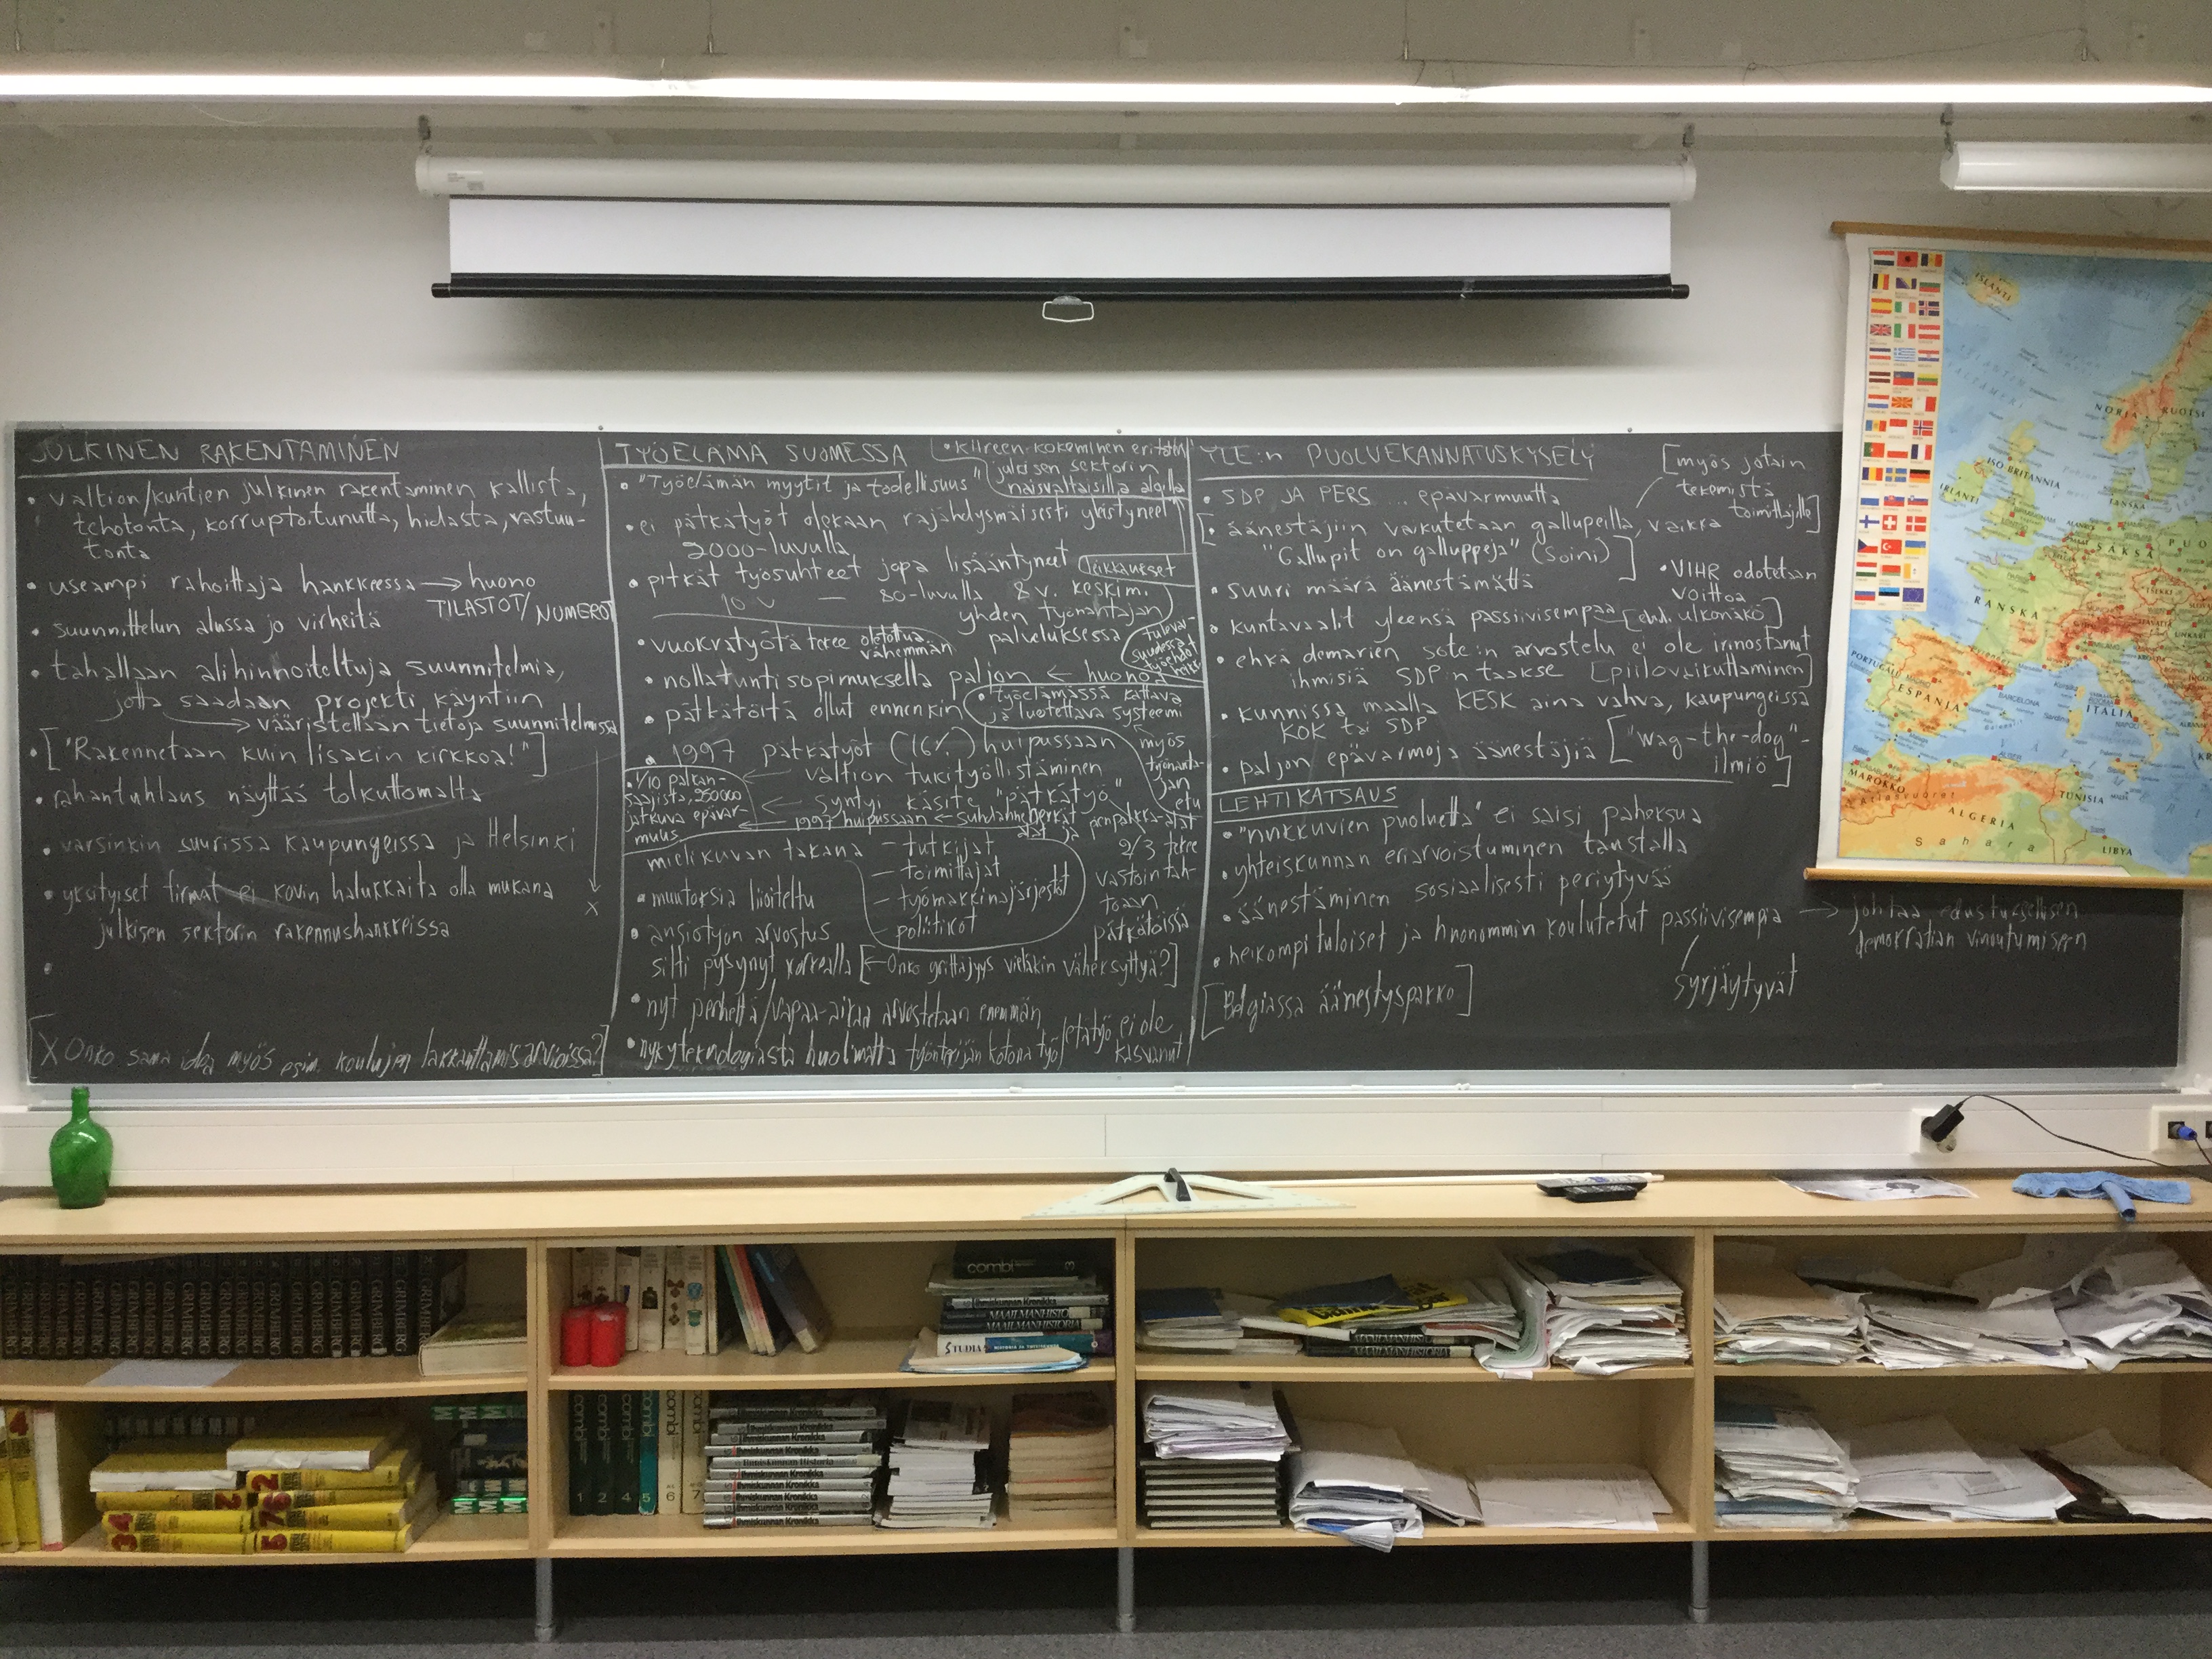 JULKINEN RAKENTAMINEN
• valtion/kuntien julkinen rakentaminen kallista,
tehotonta, korruptoitunutta, hidasta, vastuu-
tonta
• useampi rahoittaja hankkeessa → huono
TILASTOT/NUMEROT
• suunnittelun alussa jo virheitä
• tahallaan alihinnoiteltuja suunnitelmia,
jotta saadaan projekti käyntiin
→ vääristellään tietoja suunnitelmissa
• ["Rakennetaan kuin Iisakin kirkkoa!"]
• rahantuhlaus näyttää tolkuttomalta
• varsinkin suurissa kaupungeissa ja Helsinki
• yksityiset firmat ei kovin halukkaita olla mukana
julkisen sektorin rakennushankkeissa
X
[X Onko sama idea myös esim. koulujen lakkauttamisarvioissa?]
TYÖELÄMÄ SUOMESSA
• Kiireen kokeminen eritoten
julkisen sektorin
naisvaltaisilla aloilla
• "Työelämän myytit ja todellisuus"
• ei pätkätyöt olekaan räjähdysmäisesti yleistyneet
2000-luvulla
• pitkät työsuhteet jopa lisääntyneet
leikkaukset
10 v — 80-luvulla 8 v. keskim.
yhden työnantajan
palveluksessa
• vuokratyötä tekee oletettua
vähemmän
tulevai-
suudessa
työehdot
• nollatuntisopimuksella paljon ← huono
• työelämässä kattava
ja luotettava systeemi
• pätkätöitä ollut ennenkin
• 1997 pätkätyöt (16%) huipussaan
myös
työnanta-
jan
etu
• 1/10 palkan-
saajista, 250000
jatkuva epävar-
muus
← valtion tukityöllistäminen
← syntyi käsite "pätkätyö"
← 1997 huipussaan ← suhdanneherkät
alat ja
pienpalkka-alat
mielikuvan takana
– tutkijat
– toimittajat
– työmarkkinajärjestöt
– poliitikot
2/3 tekee
vastointah-
toaan
pätkätöissä
• muutoksia liioiteltu
• ansiotyön arvostus
silti pysynyt korkealla [← Onko yrittäjyys vieläkin väheksyttyä?]
• nyt perhettä/vapaa-aikaa arvostetaan enemmän
• nykyteknologiasta huolimatta työntekijän kotona työ/etätyö ei ole
kasvanut
YLE:n PUOLUEKANNATUSKYSELY
[myös jotain
tekemistä
toimittajille]
• SDP JA PERS ... epävarmuutta
[• äänestäjiin vaikutetaan gallupeilla, vaikka
"Gallupit on galluppeja" (Soini)]
• VIHR odotetaan
voittoa
• suuri määrä äänestämättä
• kuntavaalit yleensä passiivisempaa [ehd. ulkonäkö]
• ehkä demarien sote:n arvostelu ei ole innostanut
ihmisiä SDP:n taakse [piilovaikuttaminen]
• kunnissa maalla KESK aina vahva, kaupungeissa
KOK tai SDP
• paljon epävarmoja äänestäjiä ["wag-the-dog"-
ilmiö]
LEHTIKATSAUS
• "nukkuvien puoluetta" ei saisi paheksua
• yhteiskunnan eriarvoistuminen taustalla
• äänestäminen sosiaalisesti periytyvää
• heikompituloiset ja huonommin koulutetut passiivisempia → johtaa edustuksellisen
demokratian vinoutumiseen
syrjäytyvät
[Belgiassa äänestyspakko]
ISLANTI
NORJA
RUOTSI
ISO BRITANNIA
IRLANTI
TANSKA
SAKSA
PUO
RANSKA
PORTUGALI
ESPANJA
BARCELONA
ITALIA
MAROKKO
Atlasvuoret
ALGERIA
TUNISIA
Sahara
LIBYA
GRIMBERG
combi
3
Ihmiskunnan Kronikka
MAAILMANHISTORIA
MAAILMANHISTORIA
STUDIA
MAAILMANHISTORIA
MAAILMANHISTORIA
combi
1 2 4 5 6 7
Ihmiskunnan Kronikka
Ihmiskunnan Kronikka
Ihmiskunnan Kronikka
Ihmiskunnan Historia
Ihmiskunnan Kronikka
Ihmiskunnan Kronikka
Ihmiskunnan Kronikka
Ihmiskunnan Kronikka